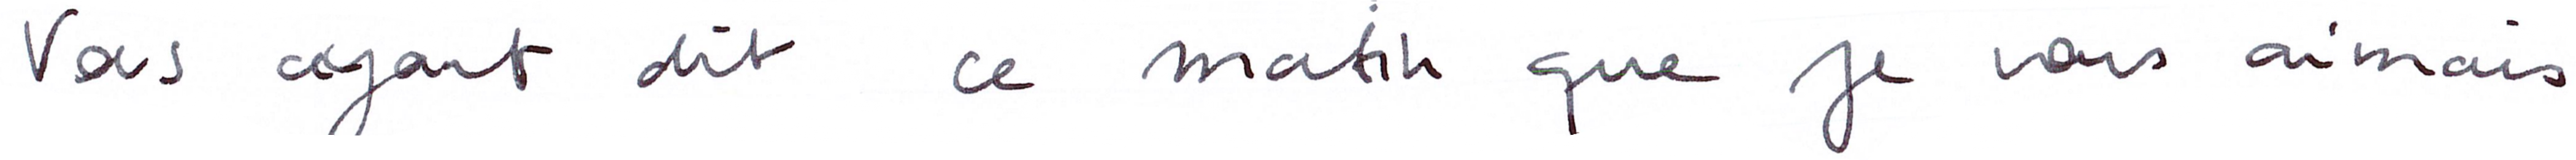 Vous ayant dit ce matin que je vous aimais